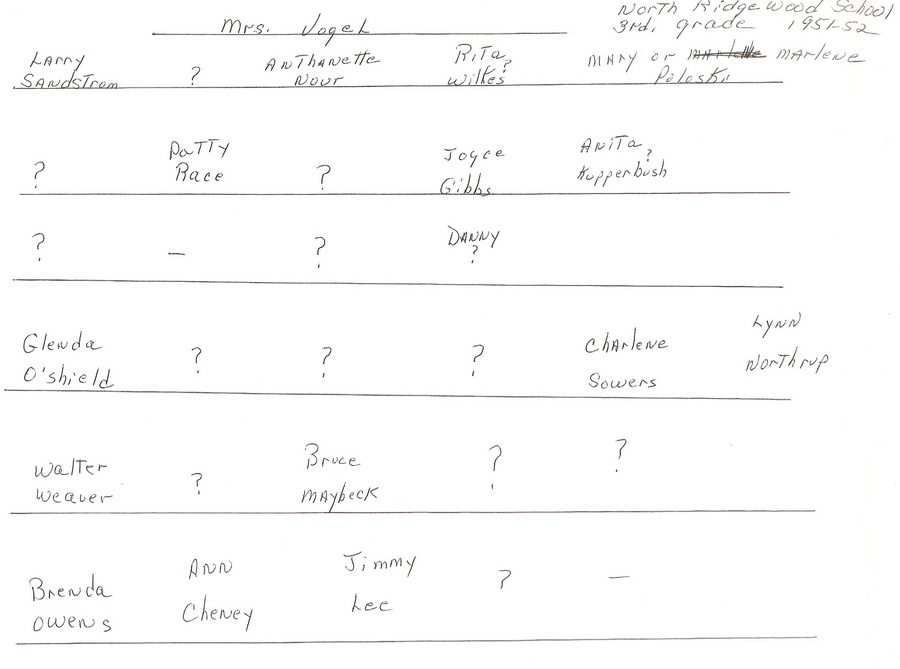 North Ridgewood School
Mrs. Vogel 3rd, grade 1951-52
Larry ? Anthanette Rita ? Mary or Marlene
Sandstrom Nour Wilkes Poloski
? Patty ? Joyce Anita ?
Race Gibbs Kupperbush
? — ? Danny
?
Lynn
Glenda ? ? ? Charlene Northrup
O'shield Sowers
Walter ? Bruce ? ?
Weaver Maybeck
Brenda Ann Jimmy ? —
Owens Cheney Lee